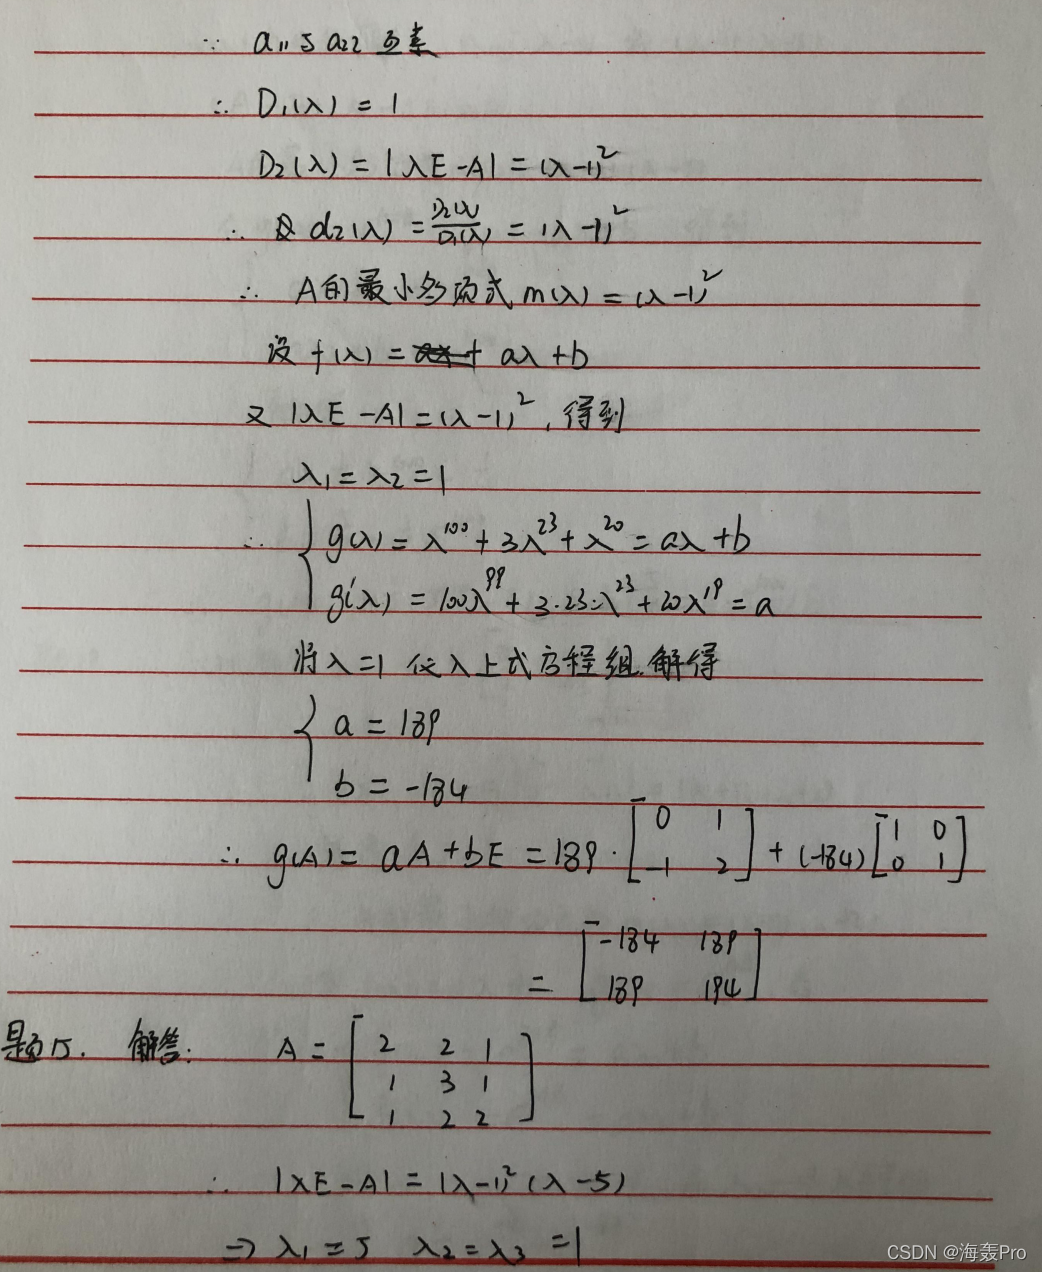 ∵ a₁₁与a₂₂互素
∴ D₁(λ) = 1
D₂(λ) = |λE-A| = (λ-1)²
∴ d₂(λ) = D₂(λ)/D₁(λ) = (λ-1)²
∴ A的最小多项式 m(λ) = (λ-1)²
设 f(λ) = aλ+b
又 |λE-A| = (λ-1)², 得到
λ₁=λ₂=1
∴ { g(λ) = λ¹⁰⁰ + 3λ²³ + λ²⁰ = aλ+b
g'(λ) = 100λ⁹⁹ + 3·23·λ²³ + 20λ¹⁹ = a
将 λ=1 代入上式方程组,解得
{ a = 189
b = -184
∴ g(A) = aA+bE = 189·[0 1; -1 2] + (-184)[1 0; 0 1]
= [-184 189; 189 194]
题15. 解答: A = [2 2 1; 1 3 1; 1 2 2]
∴ |λE-A| = (λ-1)²(λ-5)
⇒ λ₁=5 λ₂=λ₃=1
CSDN @海轰Pro